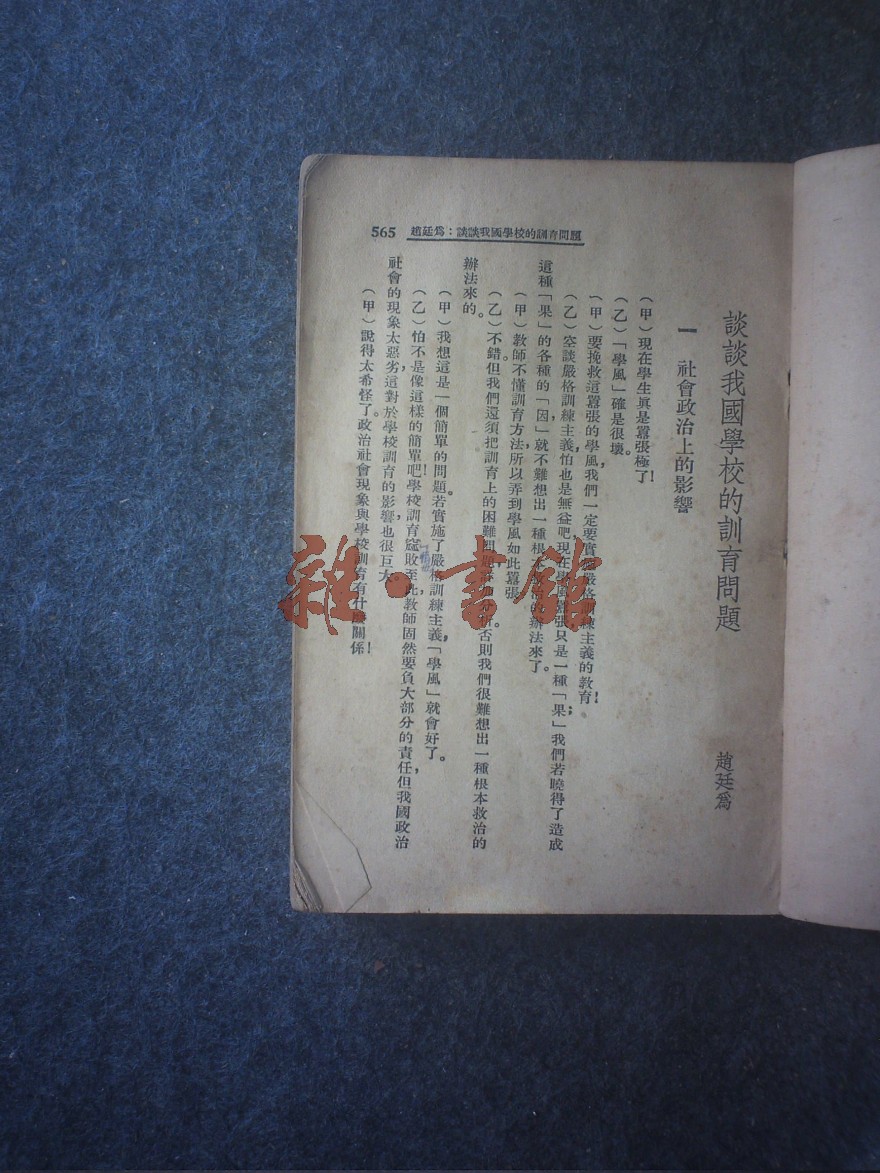 565 趙廷爲：談談我國學校的訓育問題
談談我國學校的訓育問題
趙廷爲
一 社會政治上的影響
（甲）現在學生眞是囂張極了！
（乙）「學風」確是很壞。
（甲）要挽救這囂張的學風，我們一定要實施嚴格訓練主義的教育！
（乙）空談嚴格訓練主義，怕也是無益吧。現在學風囂張只是一種「果」；我們若曉得了造成
這種「果」的各種的「因」，就不難想出一種根本救治的辦法來了。
（甲）教師不懂訓育方法，所以弄到學風如此囂張。
（乙）不錯。但我們還須把訓育上的困難問題，否則我們很難想出一種根本救治的
辦法來的。
（甲）我想這是一個簡單的問題。若實施了嚴格訓練主義，「學風」就會好了。
（乙）怕不是像這樣的簡單吧！學校訓育窳敗至此，教師固然要負大部分的責任，但我國政治
社會的現象太惡劣，這對於學校訓育的影響也很巨大。
（甲）說得太希怪了。政治社會現象與學校訓育有什麼關係！
雜·書館